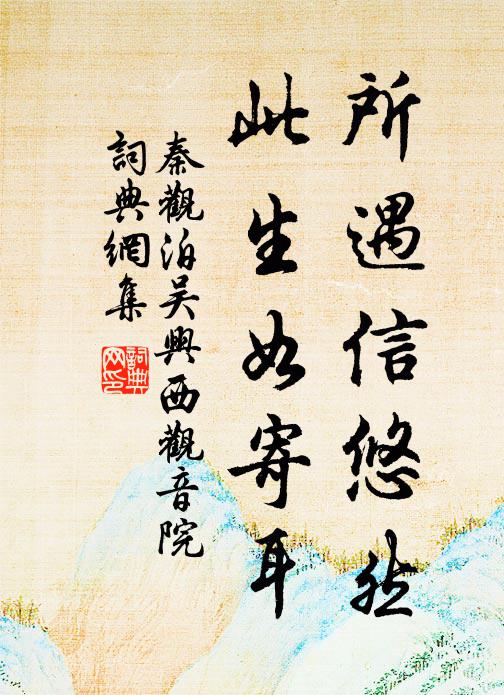 所遇信悠然
此生如寄耳
秦觀泊吴興西觀音院
詞典網集
詞典網印